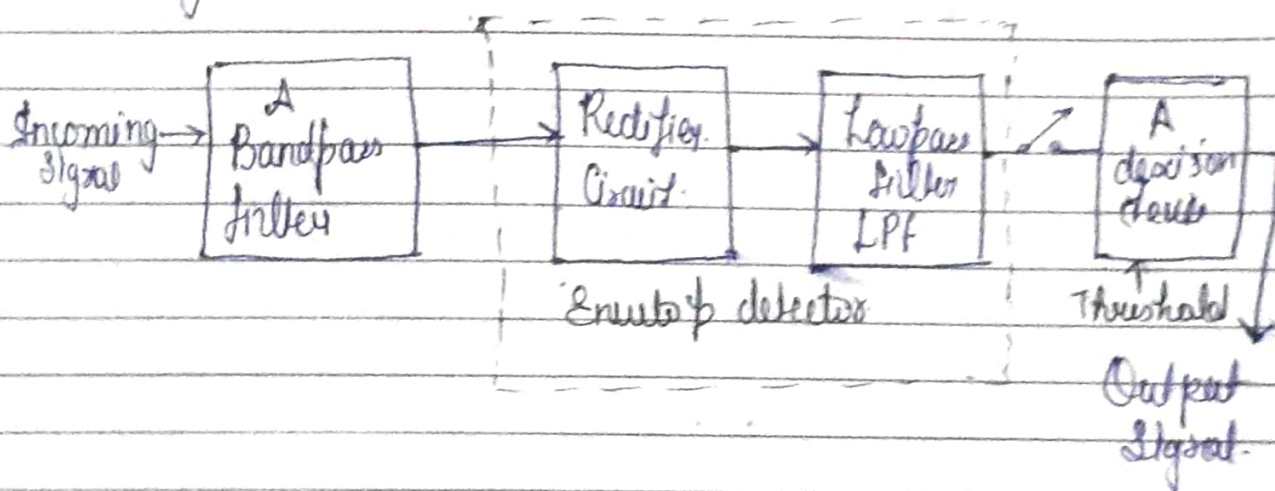 Incoming
Signal
A
Bandpass
filter
Rectifier
Circuit.
Lowpass
filter
LPF
A
decision
Envelop detector
Threshold
Output
Signal.